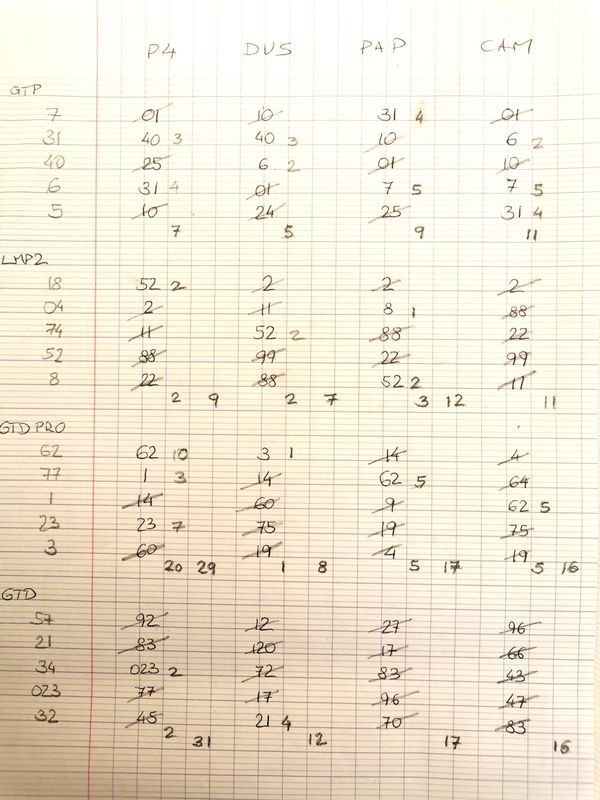 P4 DUS PAP CAM
GTP
7 01 10 31 4 01
31 40 3 40 3 10 6 2
40 25 6 2 01 10
6 31 4 01 7 5 7 5
5 10 24 25 31 4
7 5 9 11
LMP2
18 52 2 2 2 2
04 2 11 8 1 88
74 11 52 2 88 22
52 88 99 22 99
8 22 88 52 2 11
2 9 2 7 3 12 11
GTD PRO
62 62 10 3 1 14 4
77 1 3 14 62 5 64
1 14 60 9 62 5
23 23 7 75 19 75
3 60 19 4 19
20 29 1 8 5 17 5 16
GTD
57 92 12 27 96
21 83 120 17 66
34 023 2 72 83 43
023 77 17 96 47
32 45 21 4 70 83
2 31 12 17 16